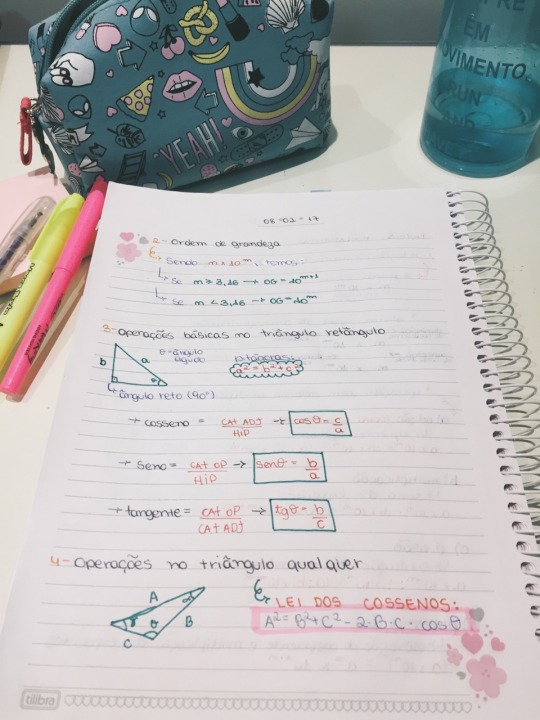 YEAH!
PRE
EM
MOVIMENTO
RUN
AND
08-02-17
2- Ordem de grandeza
Sendo n x 10^m, temos:
Se n ≥ 3,16 → OG = 10^m+1
Se n < 3,16 → OG = 10^m
3- Operações básicas no triângulo retângulo
b
a
θ
θ - ângulo
agudo
Pitágoras:
a² = b² + c²
ângulo reto (90°)
→ cosseno = CAT ADJ / HIP → cos θ = c/a
→ Seno = CAT OP / HIP → sen θ = b/a
→ tangente = CAT OP / CAT ADJ → tg θ = b/c
4- Operações no triângulo qualquer
A
B
C
θ
LEI DOS COSSENOS:
A² = B² + C² - 2·B·C·cos θ
tilibra